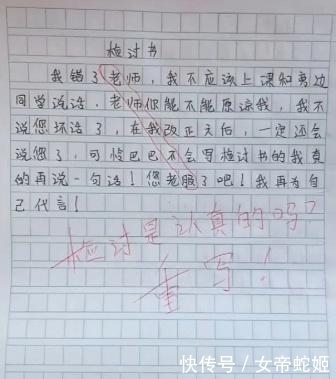 检讨书
我错了老师，我不应该上课和旁边
同学说话，老师你能不能原谅我，我不
说您坏话了，在我改正天后，一定还会
说您了，可怜巴巴不会写检讨书的我真
的再说一句话！您老服了吧！我再为自
己代言！
检讨是认真的吗？
重写！
快传号／女帝蛇姬